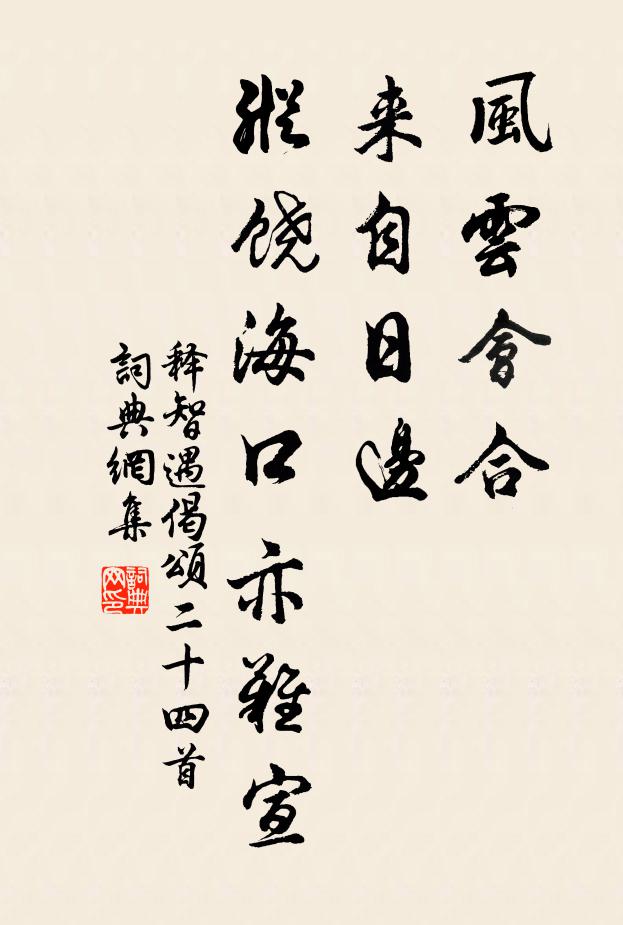 風雲會合
来自日邊
縱饶海口亦難宣
释智遇偈頌二十四首
詞典網集
詞典网印